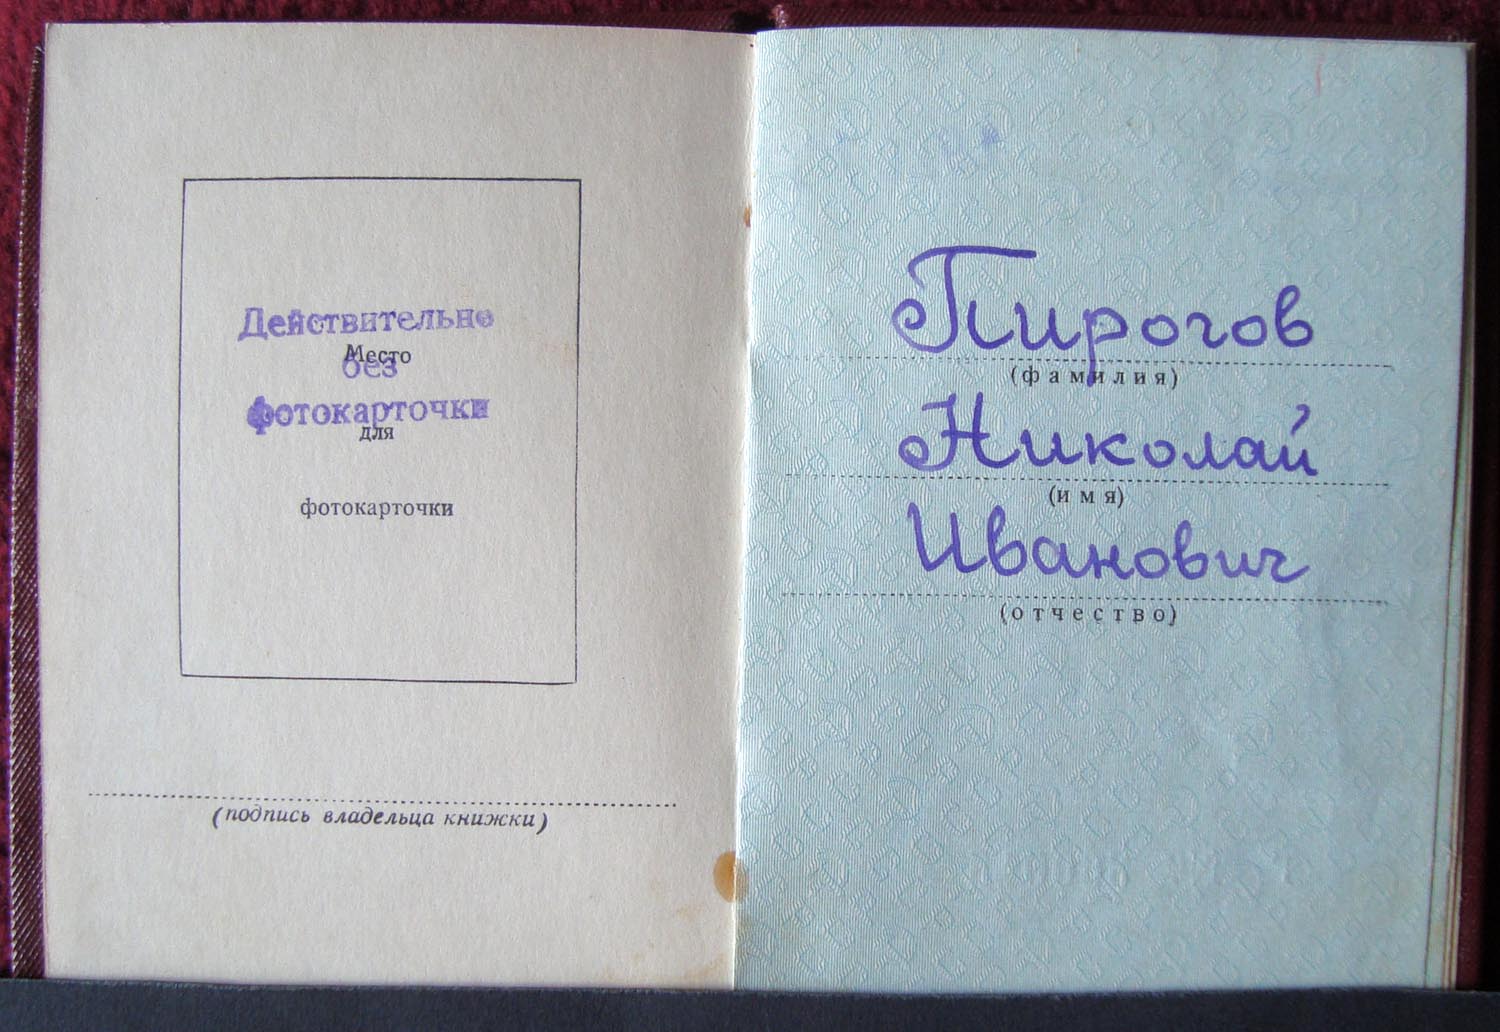 Действительно
Место
без
фотокарточки
для
фотокарточки
(подпись владельца книжки)
Пирогов
(фамилия)
Николай
(имя)
Иванович
(отчество)